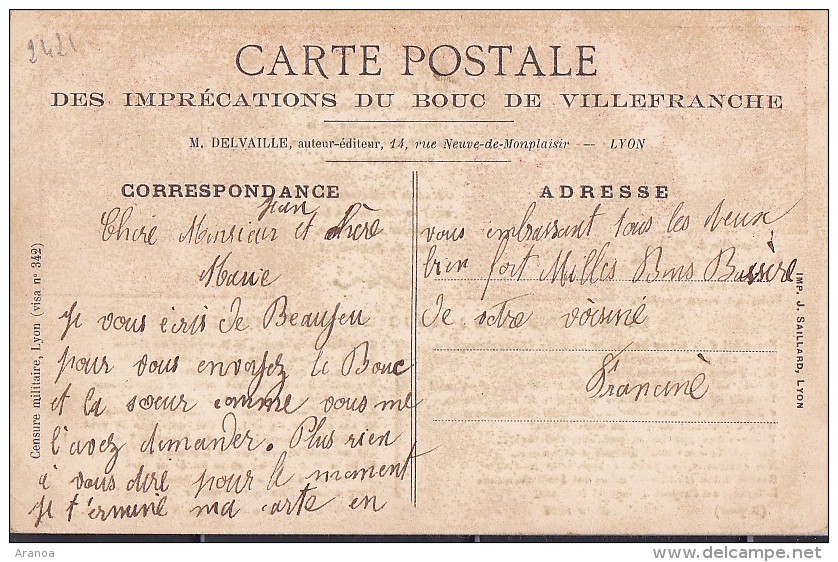 2421
CARTE POSTALE
DES IMPRÉCATIONS DU BOUC DE VILLEFRANCHE
M. DELVAILLE, auteur-éditeur, 14, rue Neuve-de-Monplaisir — LYON
CORRESPONDANCE
Jean
Cheré Monsieur et chère
Marie
Je vous écris de Beaujeu
pour vous envoyez le Bouc
et la sœur comme vous me
l'avez demander. Plus rien
à vous dire pour le moment
je t'erminé ma carte en
ADRESSE
vous embrassant tous les deux
bien fort Milles Bons Bessère
de votre voisiné
Franciné
Censure militaire, Lyon (visa nº 342)
IMP. J. SAILLARD, LYON
Aranoa
www.delcampe.net